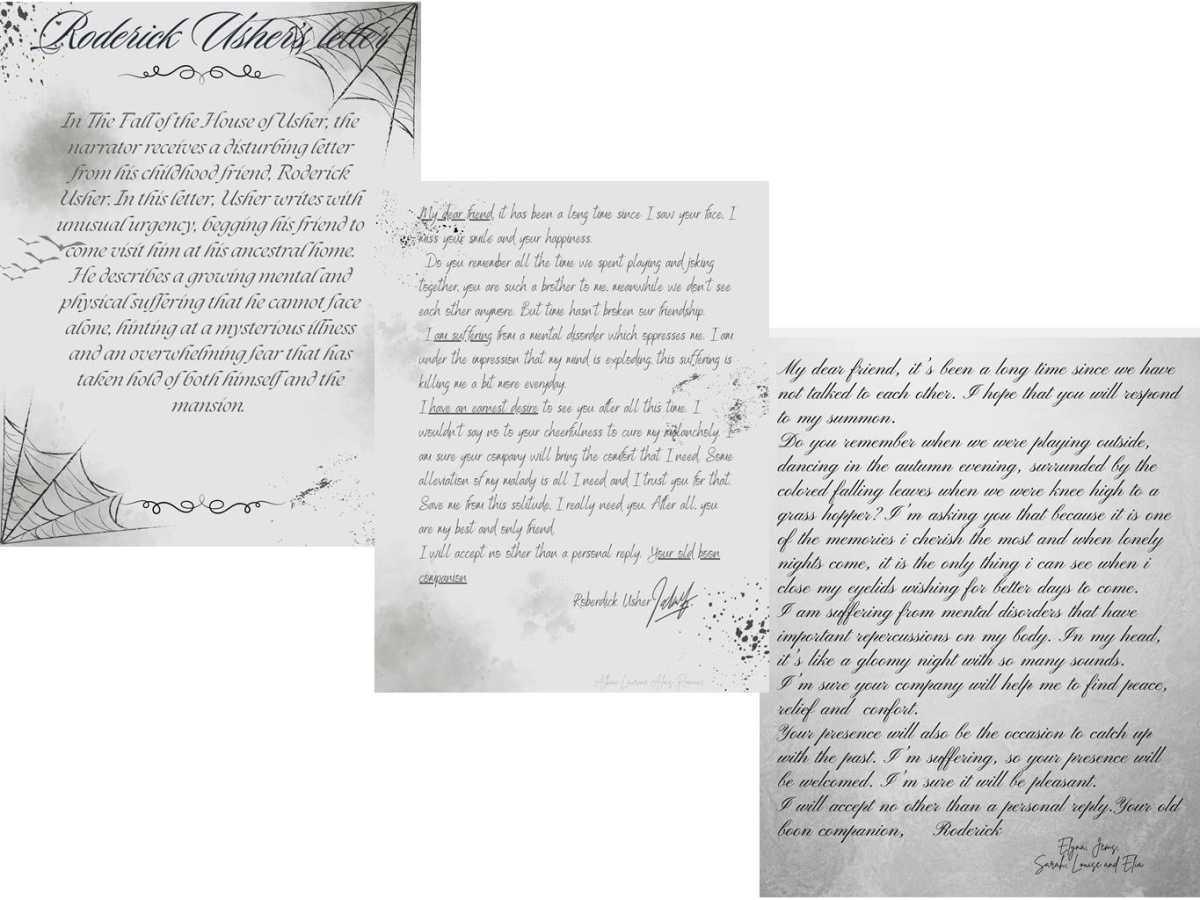 Roderick Usher's letter
In The Fall of the House of Usher, the
narrator receives a disturbing letter
from his childhood friend, Roderick
Usher. In this letter, Usher writes with
unusual urgency, begging his friend to
come visit him at his ancestral home.
He describes a growing mental and
physical suffering that he cannot face
alone, hinting at a mysterious illness
and an overwhelming fear that has
taken hold of both himself and the
mansion.
My dear friend, it has been a long time since I saw your face, I
miss your smile and your happiness.
Do you remember all the time we spent playing and joking
together, you are such a brother to me, meanwhile we don't see
each other anymore. But time hasn't broken our friendship.
I am suffering from a mental disorder which oppresses me. I am
under the impression that my mind is exploding, this suffering is
killing me a bit more everyday.
I have an earnest desire to see you after all this time. I
wouldn't say no to your cheerfulness to cure my melancholy. I
am sure your company will bring the comfort that I need. Some
alleviation of my malady is all I need and I trust you for that.
Save me from this solitude, I really need you. After all, you
are my best and only friend.
I will accept no other than a personal reply. Your old boon
companion
Roberdick Usher
My dear friend, it's been a long time since we have
not talked to each other. I hope that you will respond
to my summon.
Do you remember when we were playing outside,
dancing in the autumn evening, surrunded by the
colored falling leaves when we were knee high to a
grass hopper? I'm asking you that because it is one
of the memories i cherish the most and when lonely
nights come, it is the only thing i can see when i
close my eyelids wishing for better days to come.
I am suffering from mental disorders that have
important repercussions on my body. In my head,
it's like a gloomy night with so many sounds.
I'm sure your company will help me to find peace,
relief and confort.
Your presence will also be the occasion to catch up
with the past. I'm suffering, so your presence will
be welcomed. I'm sure it will be pleasant.
I will accept no other than a personal reply.Your old
boon companion, Roderick
Elyna, Jems,
Sarah, Louise and Elia